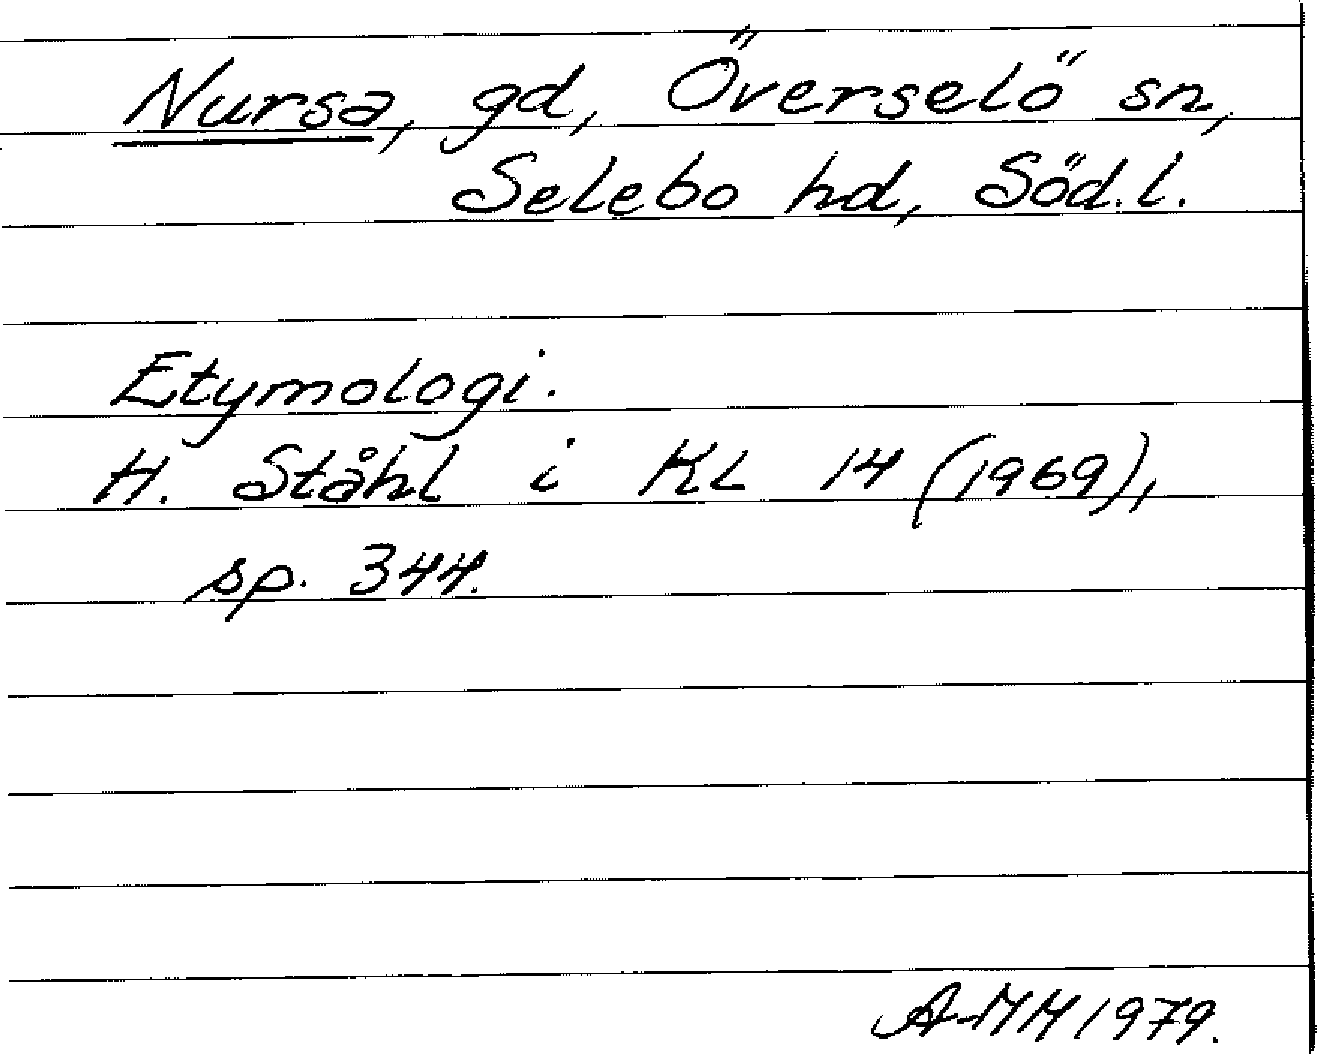 Nursa, gd, Överselö sn,
Selebo hd, Söd.l.
Etymologi.
H. Ståhl i KL 14 (1969),
sp. 344.
A-MM 1979.